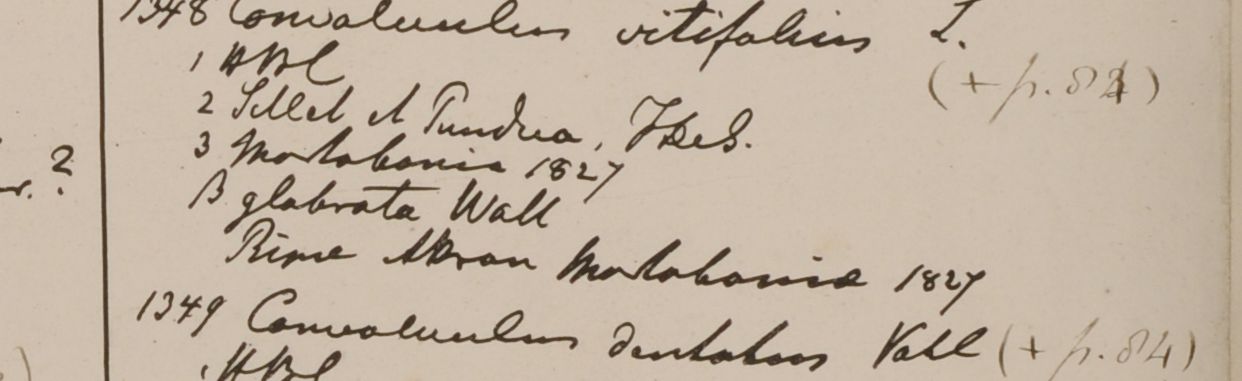 1348 Convolvulus vitifolius L.
1 HBC
(+ p. 84)
2 Sillet et Pundua,
3 Martabania 1827
2
β glabrata Wall
Ripae Attran Martabaniae 1827
1349 Convolvulus dentatus Vahl (+ p. 84)
1 HBC